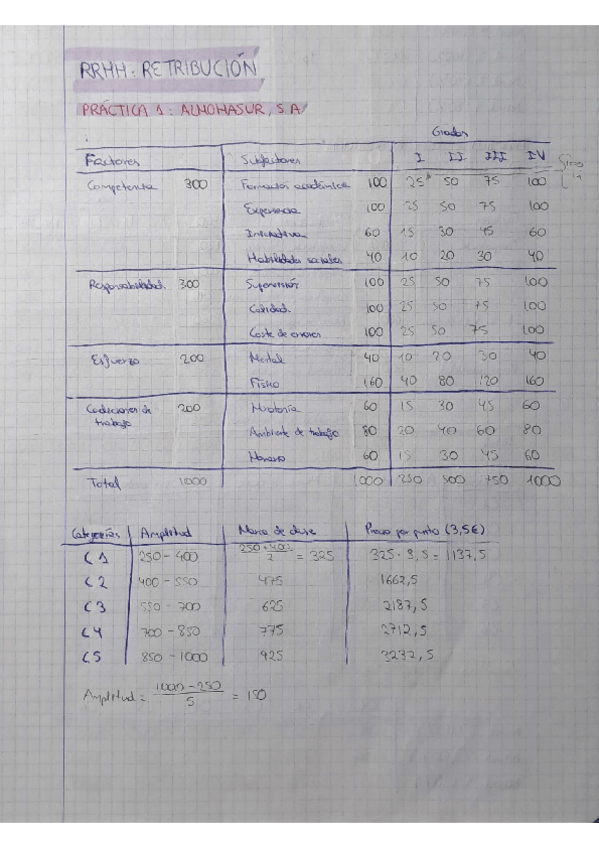 RRHH: RETRIBUCIÓN
PRÁCTICA 1: ALMOHASUR, S.A.
Grados
Factores Subfactores I II III IV
Competencia 300 Formación académica 100 25 50 75 100
Experiencia 100 25 50 75 100
Iniciativa 60 15 30 45 60
Habilidades sociales 40 10 20 30 40
Responsabilidad 300 Supervisión 100 25 50 75 100
Calidad 100 25 50 75 100
Coste de errores 100 25 50 75 100
Esfuerzo 200 Mental 40 10 20 30 40
Físico 160 40 80 120 160
Condiciones de trabajo 200 Monotonía 60 15 30 45 60
Ambiente de trabajo 80 20 40 60 80
Horario 60 15 30 45 60
Total 1000 1000 250 500 750 1000
Categorías Amplitud Marca de clase Precio por punto (3,5€)
C1 250 - 400 250+400/2 = 325 325 · 3,5 = 1137,5
C2 400 - 550 475 1662,5
C3 550 - 700 625 2187,5
C4 700 - 850 775 2712,5
C5 850 - 1000 925 3237,5
Amplitud = 1000 - 250 / 5 = 150